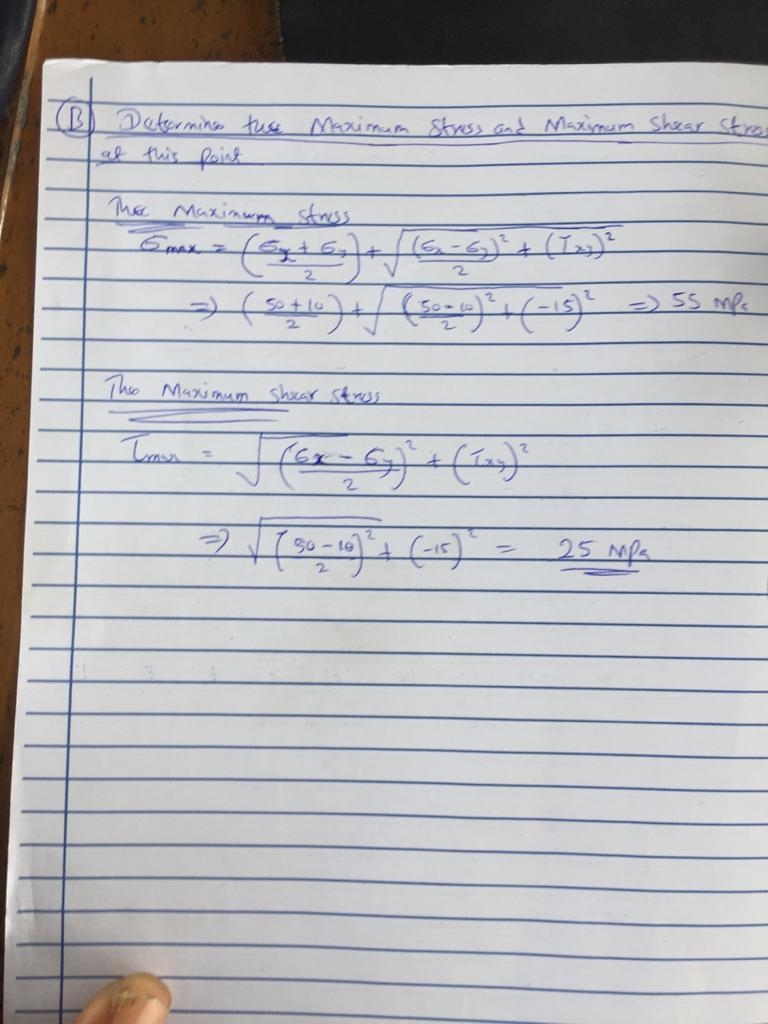 (B) Determine tuse Maximum Stress and Maximum Shear Stress
at this point
The Maximum stress
σmax = (σx + σy / 2) + √(σx − σy / 2)² + (τxy)²
⇒ (50+10 / 2) + √(50−10 / 2)² + (−15)² ⇒ 55 MPa
The Maximum shear stress
τmax = √(σx − σy / 2)² + (τxy)²
⇒ √(50−10 / 2)² + (−15)² = 25 MPa